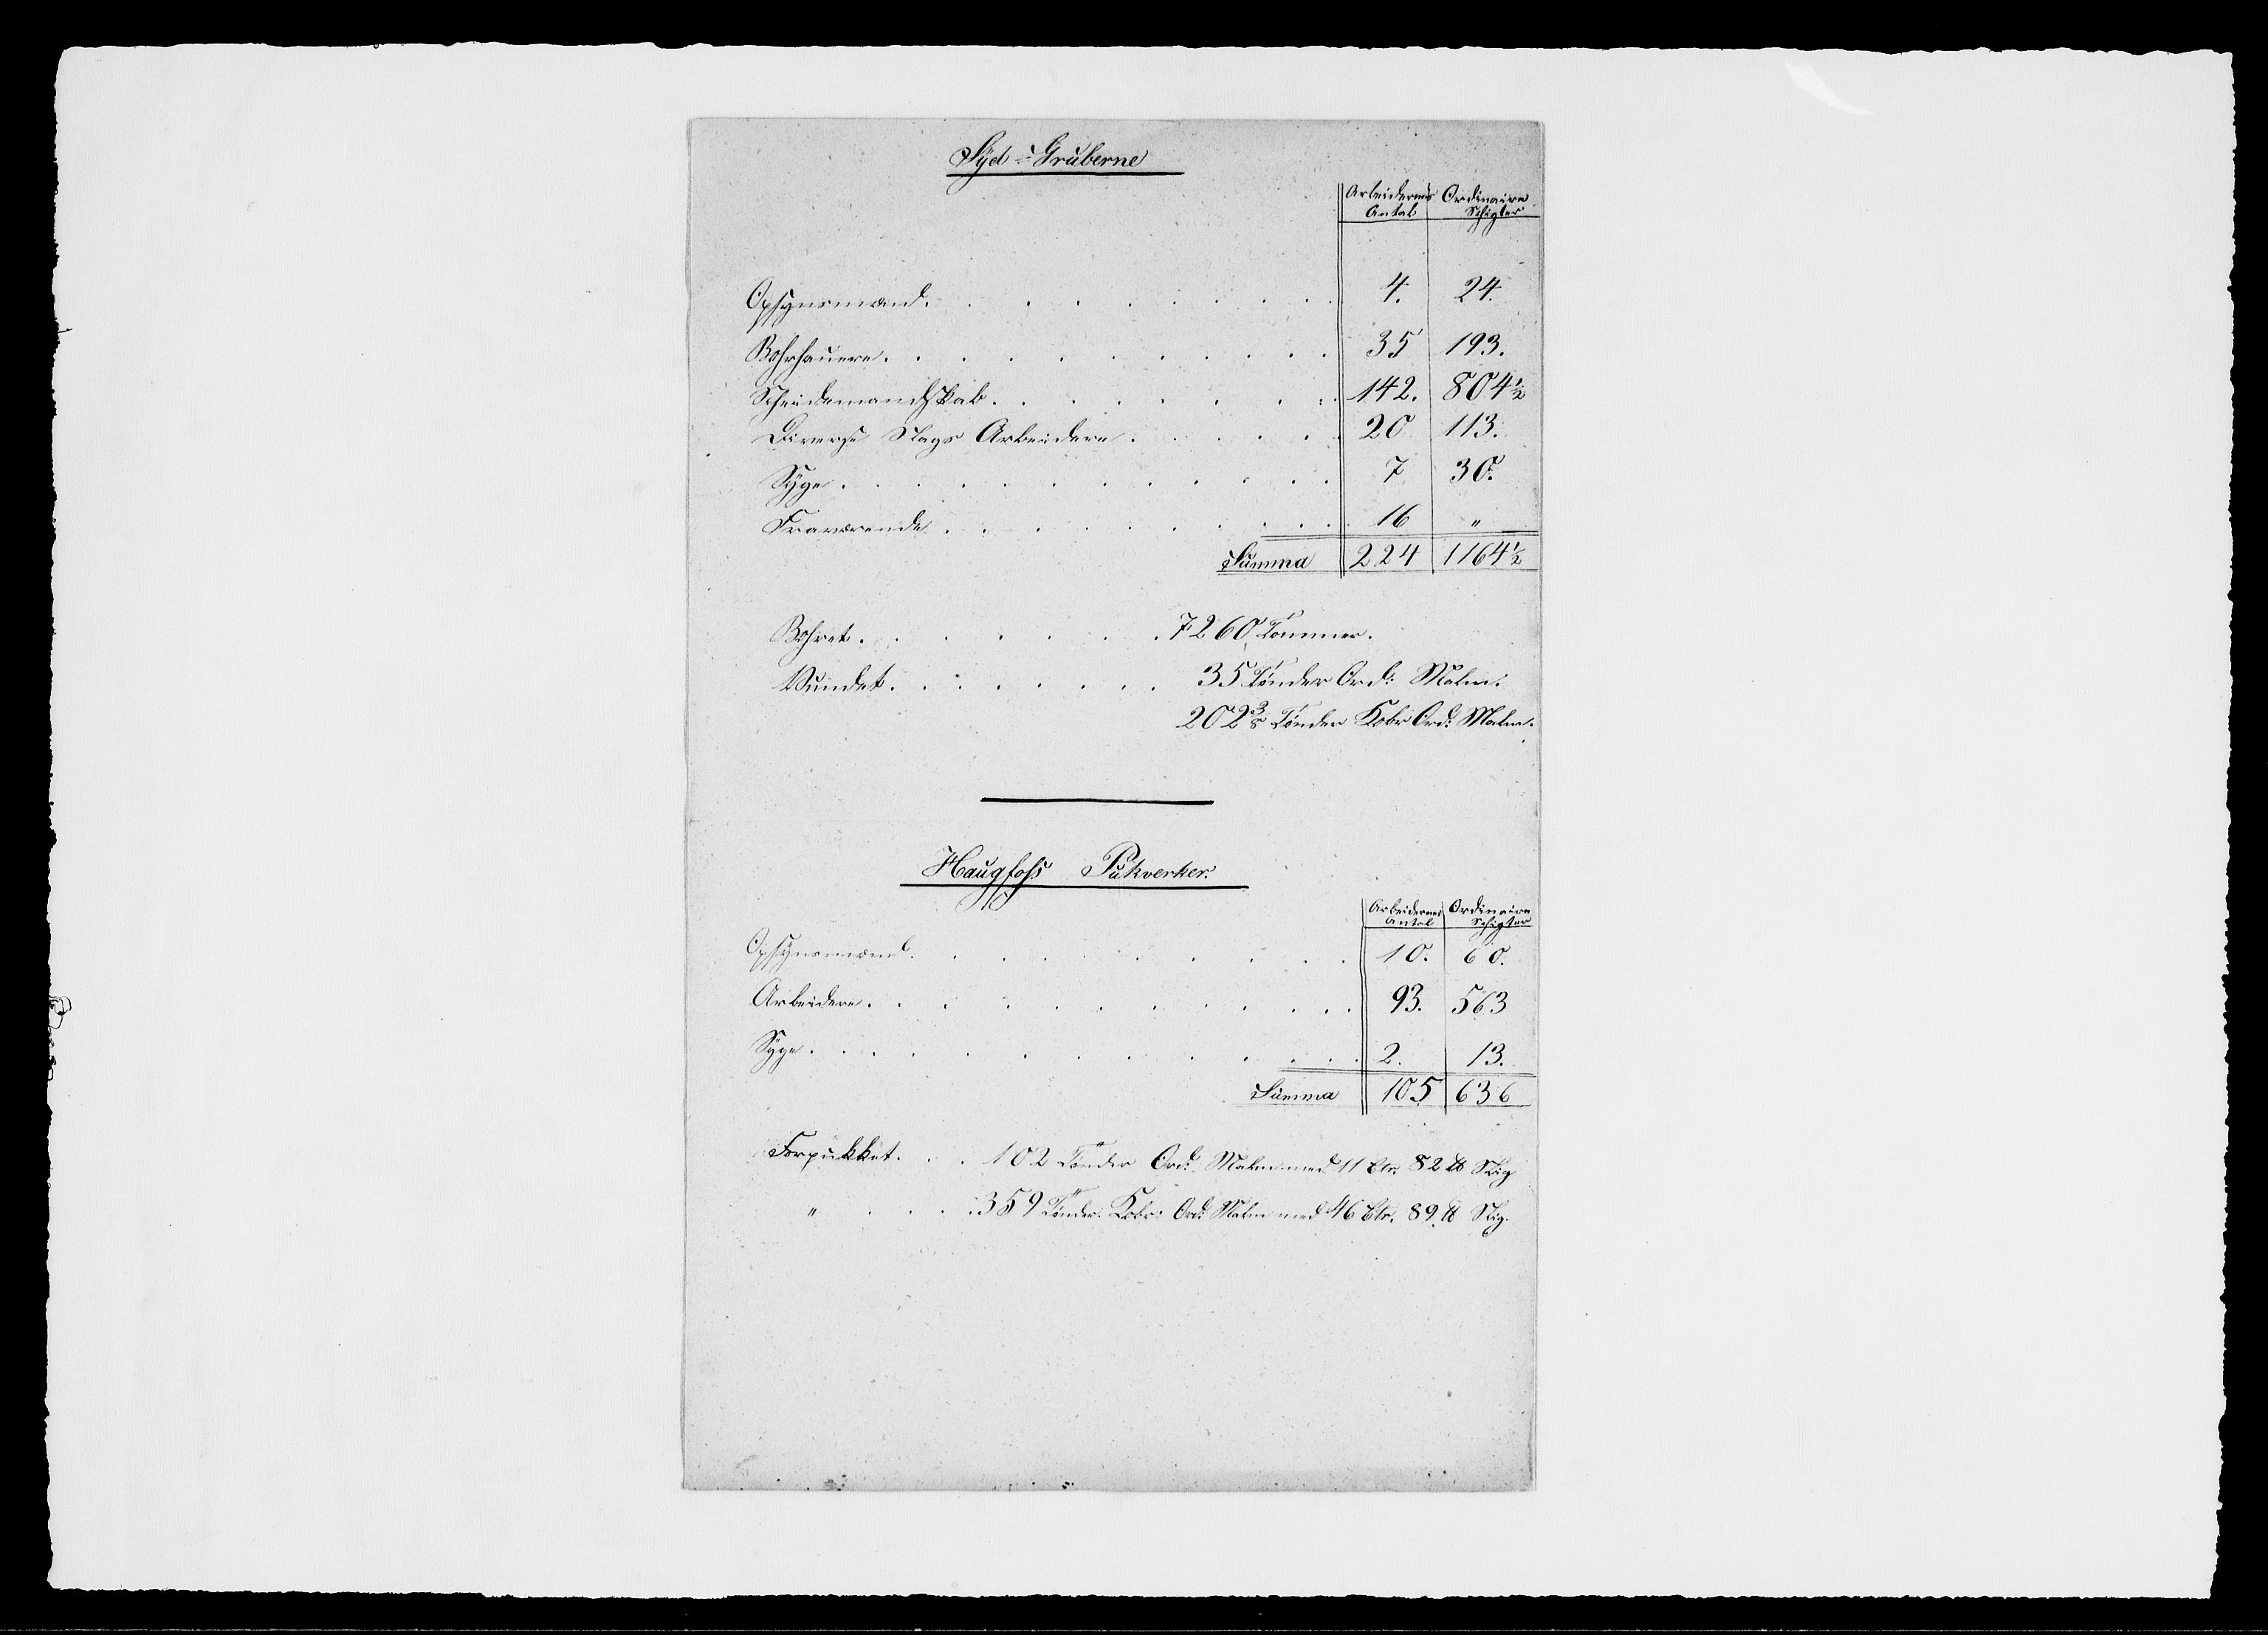 Syd-Gruberne
Arbeidernes Antal Ordinaire Schigter
Opsynsmænd. 4. 24.
Bohrhauere. 35 193.
Scheidemandskab. 142. 804 1/2
Diverse Slags Arbeidere. 20 113.
Syge. 7 30.
Fraværende. 16 "
Summa 224 1164 1/2
Bohret. 7260 Tommer.
Vundet. 35 Tönder Ord: Malm.
202 3/8 Tönder Kobr Ord: Malm.
Haugfoss Pukverker.
Arbeidernes Antal Ordinaire Schigter
Opsynsmænd. 10. 60.
Arbeidere. 93. 563
Syge. 2. 13.
Summa 105 636
Forpukket. 102 Tönder Ord: Malm med 11 Ctr. 82 ℔ Slig
" 359 Tönder Kobr: Ord: Malm med 46 Ctr. 89 ℔ Slig.